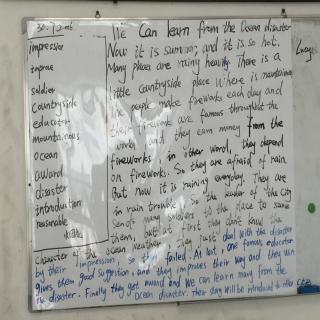 impression
improve
soldier
countryside
educator
mountainous
ocean
award
disaster
introduction
reasonable
We Can learn from the Ocean disaster
Now it is summer, and it is so hot.
Many places are raining heavily. There is a
little Countryside place where is mountainous
people make fireworks each day and
their firework are famous throughout the
world and they earn money from the
fireworks in other word, they depend
on fireworks. So they are afraid of rain.
But now it is raining everyday. They are
in rain trouble, So the leader of the City
sends many soldiers to the place to save
them, but at first they don't know the
Character of the ocean weather, they just deal with the disaster
by their impression, so they failed. At last, one famous educator
gives them good suggestion, and they improves their way and they win
the disaster. Finally they get award and we can learn many from the
Ocean disaster. Their story will be introduced to other